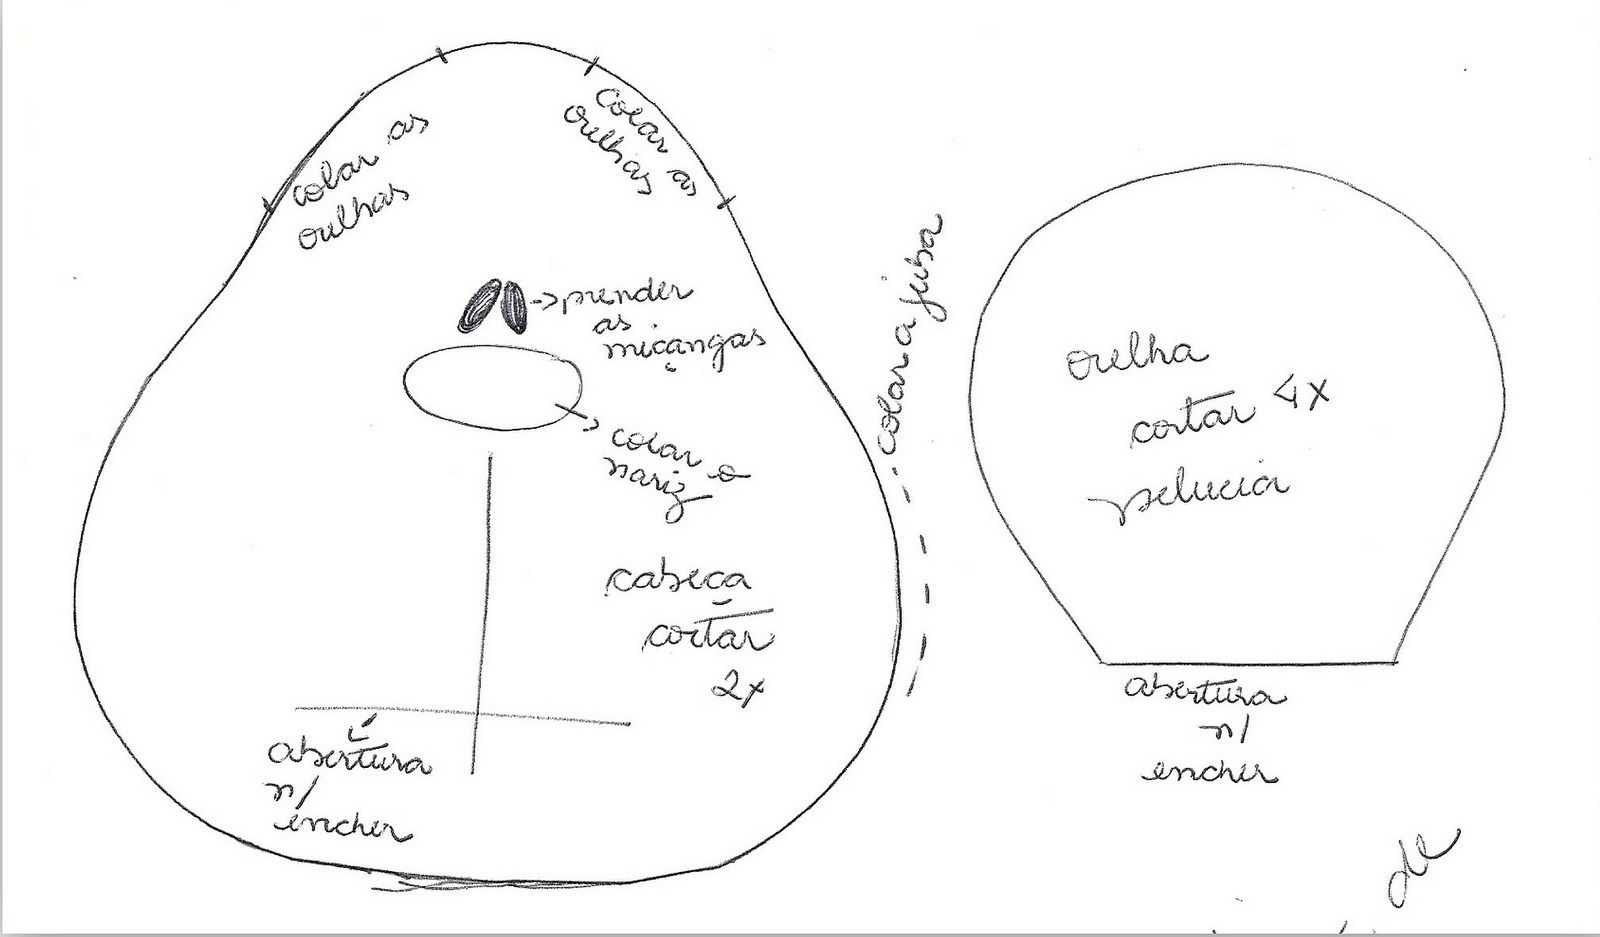 colar as
orelhas
colar as
orelhas
->prender
as
miçangas
colar o
nariz
cabeça
cortar
2x
abertura
p/
encher
colar a juba
orelha
cortar 4x
pelucia
abertura
p/
encher
de